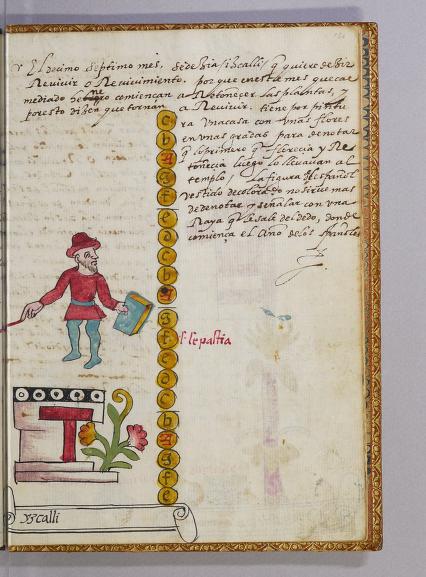 El decimo septimo mes, se dezia izcalli, q quiere dezir
Revivir o Revivimiento. porque en este mes que cae
mediado de enero comiençan a Retoñecer las plantas, y
por esto dizen que tornan a Revivir. tiene por pintu
ra una casa con unas flores
en unas gradas para denotar
q lo primero q florecia y Re
toñecia luego lo llevavan al
templo/ La figura del español
vestido de colorado no sirve mas
de denotar y señalar con una
Raya q le sale del dedo, donde
comiença el Año de los
c
b
A
g
f
e
d
c
b
A
g
f
e
d
c
b
A
g
f
e
yzcalli